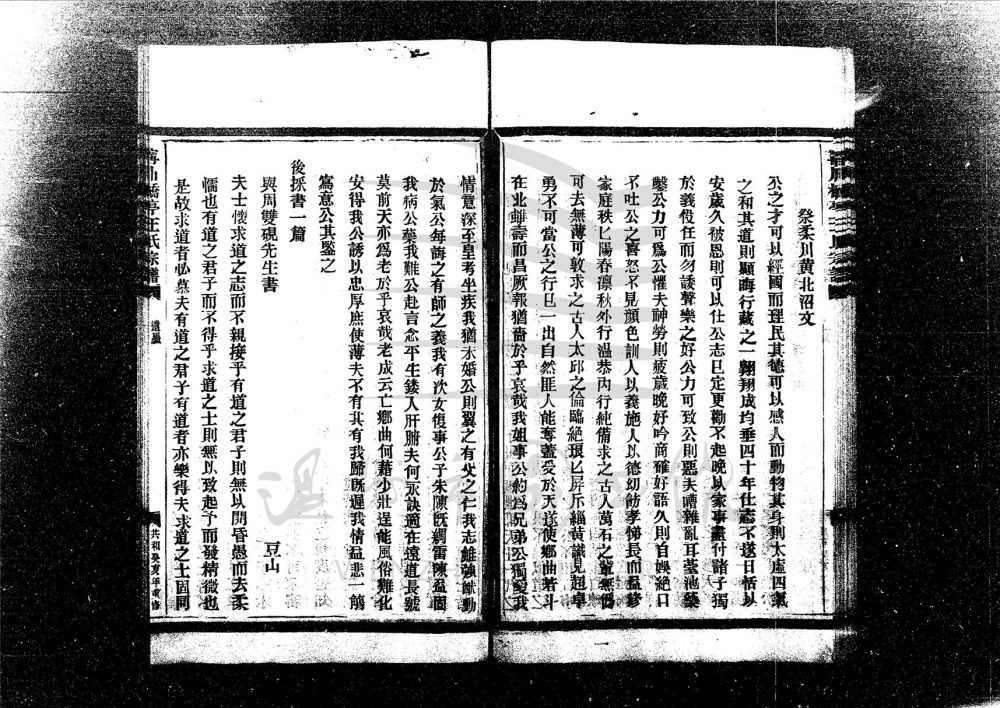 祭柔川黄北沼文
公之才可以經國而理民其德可以感人而動物其身則太虛四氣
之和其道則顯晦行藏之一翺翔成均垂四十年仕志不遂日恬以
安歲久被恩則可以仕公志已定更勸不起晚以家事盡付諸子獨
於義役任而勿諉聲樂之好公力可致公則惡夫嘈雜亂耳臺池藥
鑿公力可爲公懼夫神勞則疲歲晚好吟商確好語久則自娛絕口
不吐公之喜怒不見顔色訓人以義施人以德幼飭孝悌長而益修
家庭秩匕陽春凛秋外行温恭內行純備求之古人萬石之輩無僞
可去無薄可敦求之古人太邱之倫臨絕琅匕屏斥緇黄識見超卓
勇不可當公之行已一出自然匪人能奪蓋爱於天遂使鄉曲若斗
在北雖壽而昌厥報猶嗇於乎哀哉我姐事公約爲兄弟公獨愛我
情意深至皇考坐疾我猶未婚公則翼之有父之仁我志雖強猷動
於氣公每誨之有師之義我有次女復事公子朱陳旣稠雷陳益固
我病公藥我難公赴言念平生鏤人肝腑夫何永訣適在遠道長號
莫前天亦爲老於乎哀哉老成云亡鄉曲何藉少壯逞能風俗難化
安得我公誘以忠厚庶使薄夫不有其有我歸旣遲我情益悲一觴
寫意公其鑒之
後採書一篇
與周雙硯先生書
豆山
夫士懷求道之志而不親接乎有道之君子則無以開昏愚而去柔
懦也有道之君子而不得乎求道之士則無以致起予而發精微也
是故求道者必慕夫有道之君子有道者亦樂得夫求道之士固阿
橋亭汪氏宗譜
遺風
共和癸亥年重修